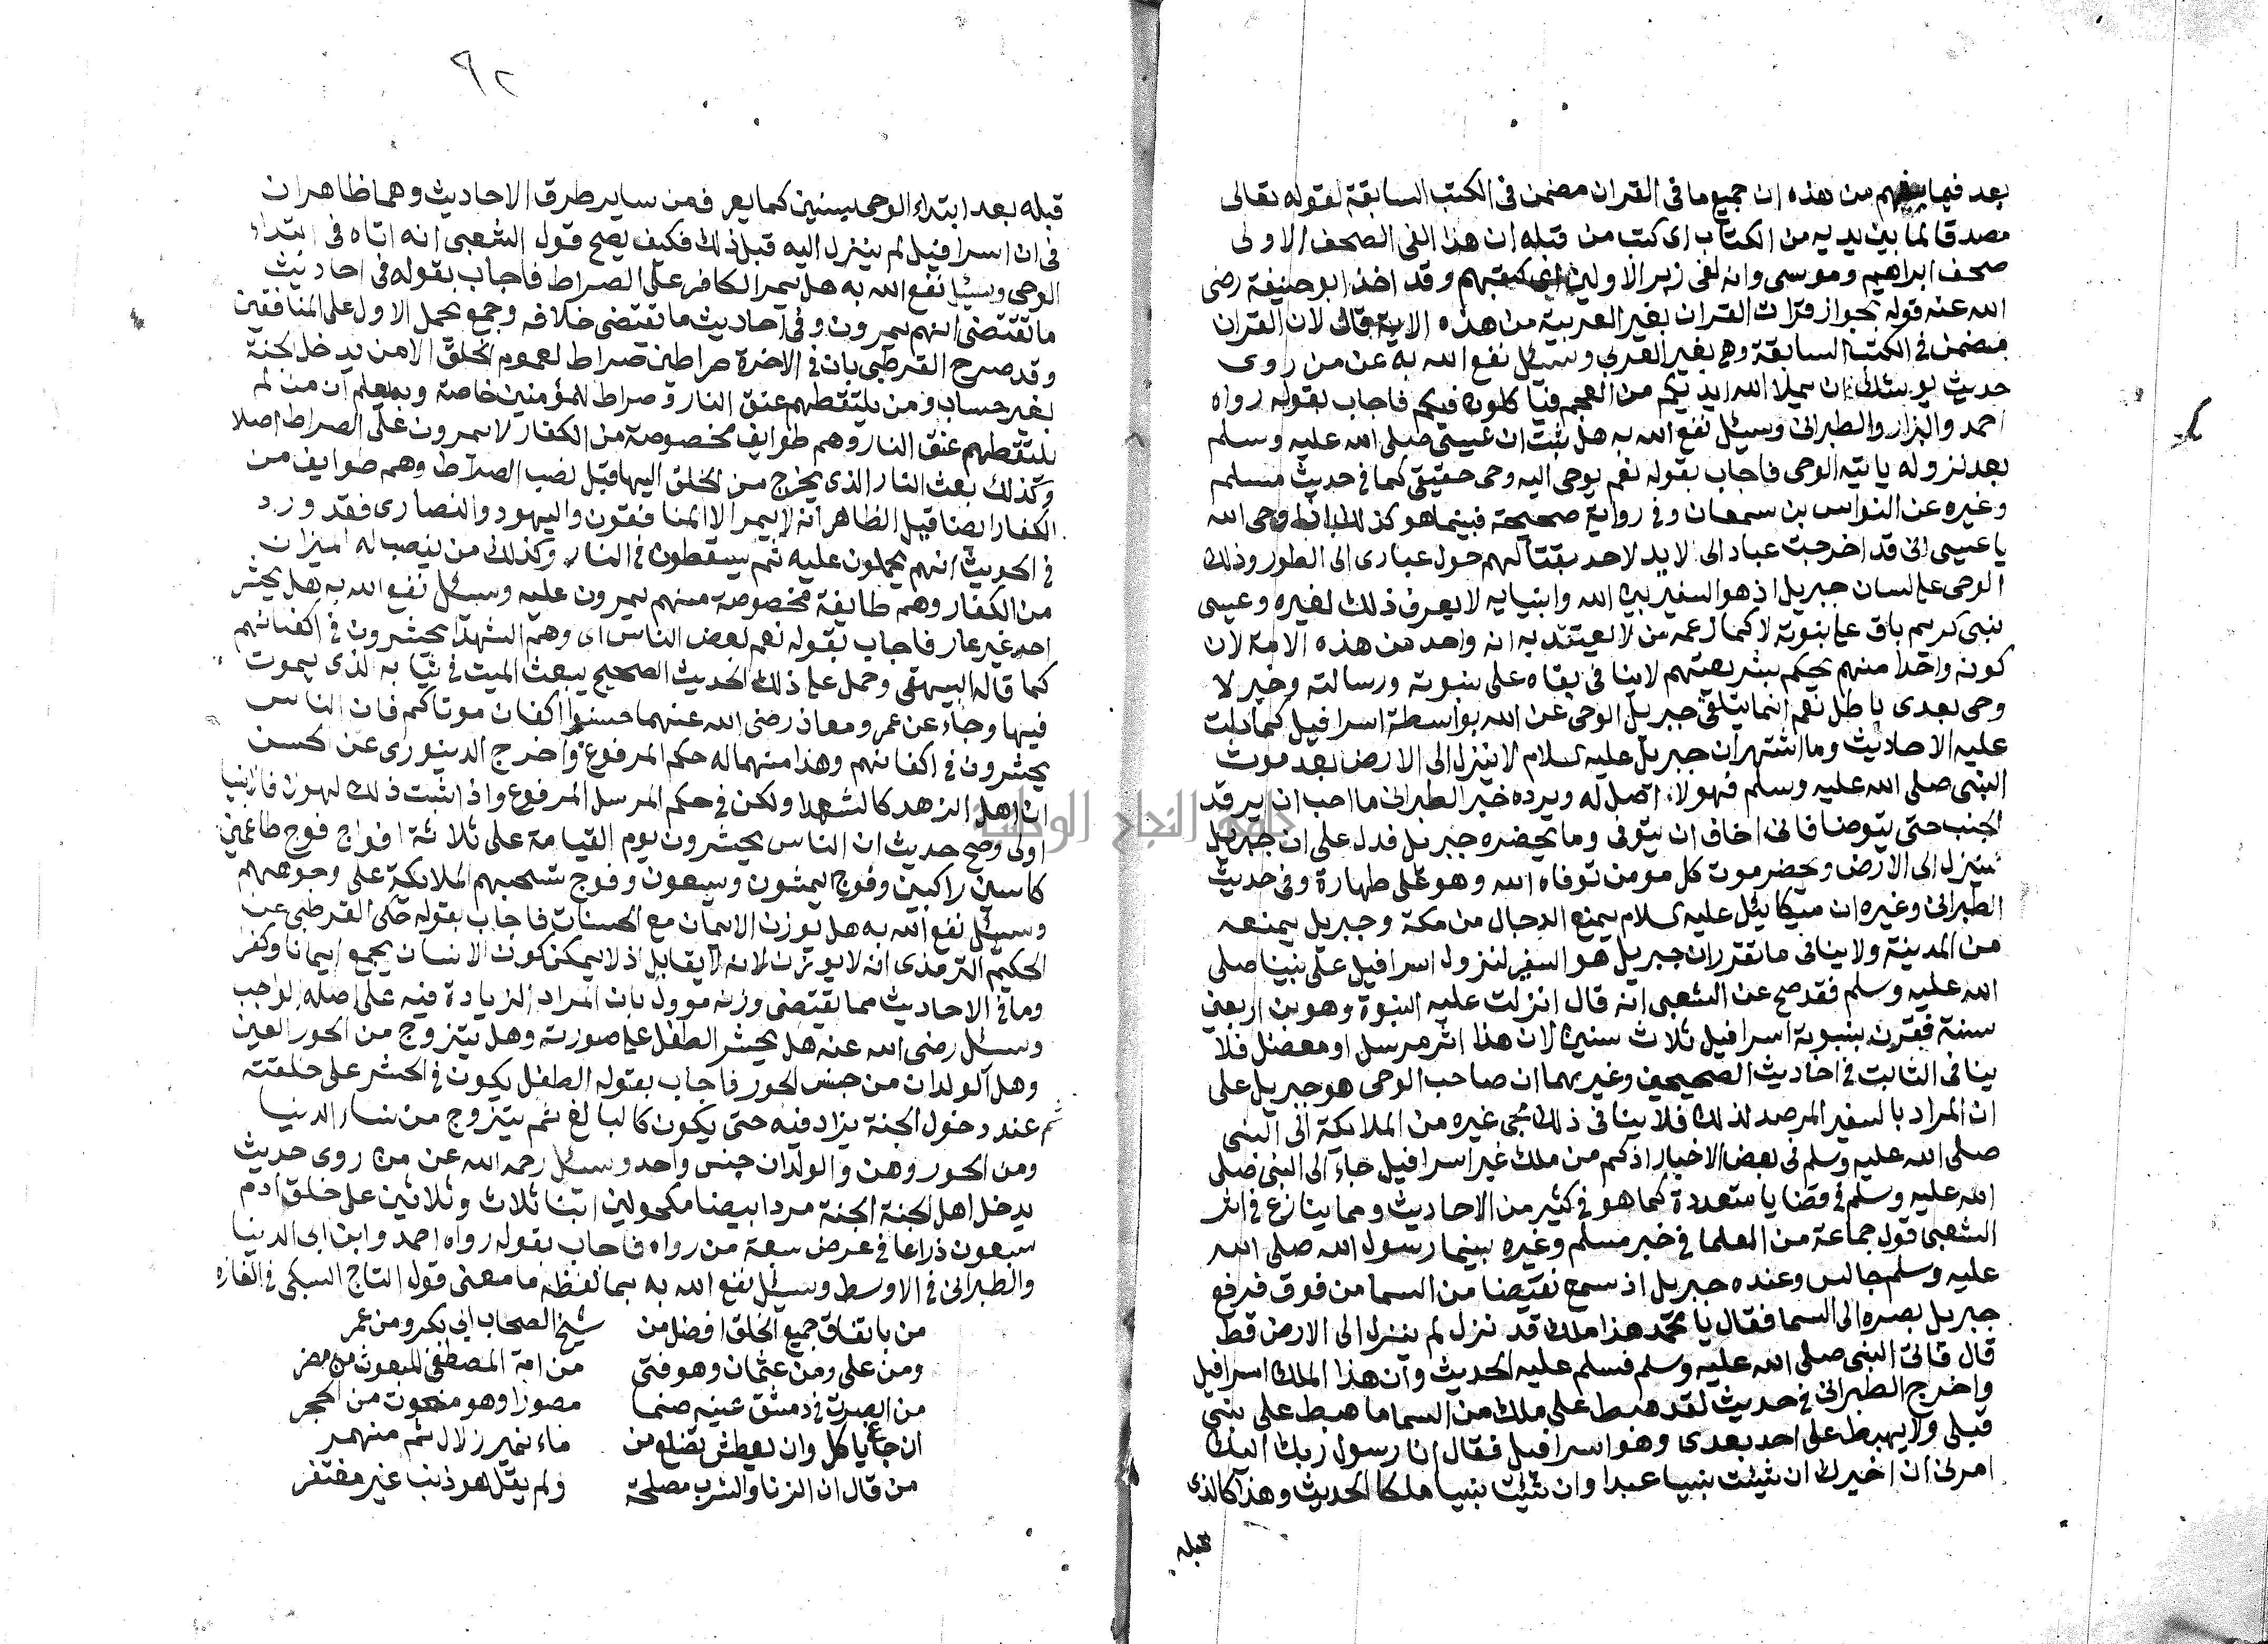 بعد فيما يفهم من هذه ان جميع ما في القران مضمن في الكتب السابقة لقوله تعالى
مصدقا لما بين يديه من الكتاب اى كتب من قبله ان هذا لفى الصحف الاولى
صحف ابراهيم وموسى وانه لفى زبر الاولين اى كتبهم وقد اخذ ابو حنيفة رضى
الله عنه قوله بجواز قرات القران بغير العربية من هذه الاية قال لان القران
مضمن في الكتب السابقة وهى بغير العربى وسئل نفع الله به عن من روى
حديث يوشك ان يملا الله ايديكم من العجم فيا كلون فيكم فاجاب بقوله رواه
احمد والبزار والطبرانى وسئل نفع الله به هل ثبت ان عيسى صلى الله عليه وسلم
بعد نزوله ياتيه الوحى فاجاب بقوله نعم يوحى اليه وحى حقيقى كما في حديث مسلم
وغيره عن النواس بن سمعان وفى رواية صحيحة فبينما هو كذلك اذ اوحى الله
يا عيسى انى قد اخرجت عبادا لى لا يد لاحد بقتالهم حول عبادى الى الطور وذلك
الوحى على لسان جبريل اذ هو السفير بين الله وانبيايه لا يعرف ذلك لغيره وعيسى
نبى كريم باق على نبوته لا كما زعمه من لا يعتد به انه واحد من هذه الامة لان
كونه واحدا منهم يحكم بشريعتهم لا ينافى بقاه على نبوته ورسالته وخبر لا
وحى بعدى باطل نعم انما يتلقى جبريل الوحى عن الله بواسطة اسرافيل كما دلت
عليه الاحاديث وما اشتهر ان جبريل عليه السلام لا ينزل الى الارض بعد موت
النبى صلى الله عليه وسلم فهو لا اصل له ويرده خبر الطبرانى ما احب ان يرقد
الجنب حتى يتوضا فانى اخاف ان يتوفى وما يحضره جبريل فدل على ان جبريل
ينزل الى الارض ويحضر موت كل مومن توفاه الله وهو على طهارة وفى حديث
الطبرانى وغيره ان ميكائيل عليه السلام يمنع الدجال من مكة وجبريل يمنعه
من المدينة ولا ينافى ما تقرر ان جبريل هو السفير لنزول اسرافيل على نبينا صلى
الله عليه وسلم فقد صح عن الشعبى انه قال انزلت عليه النبوة وهو بن اربعين
سنة فقرن بنبوته اسرافيل ثلاث سنين لان هذا اثر مرسل او معضل فلا
ينافى الثابت في احاديث الصحيحين وغيرهما ان صاحب الوحى هو جبريل على
ان المراد بالسفير المرصد لذلك فلا ينافى ذلك مجى غيره من الملايكة الى النبى
صلى الله عليه وسلم فى بعض الاخبار اذ كم من ملك غير اسرافيل جاء الى النبى صلى
الله عليه وسلم في قضايا متعددة كما هو في كثير من الاحاديث ومما ينازع في اثر
الشعبى قول جماعة من العلما في خبر مسلم وغيره بينما رسول الله صلى الله
عليه وسلم جالس وعنده جبريل اذ سمع نقيضا من السما من فوق فرفع
جبريل بصره الى السما فقال يا محمد هذا ملك قد نزل لم ينزل الى الارض قط
قال فاتى النبى صلى الله عليه وسلم فسلم عليه الحديث وان هذا الملك اسرافيل
واخرج الطبرانى في حديث لقد هبط على ملك من السما ما هبط على نبى
قبلى ولا يهبط على احد بعدى وهو اسرافيل فقال انا رسول ربك اليك
امرنى ان اخيرك ان شئت نبيا عبدا وان شئت نبيا ملكا الحديث وهذا كالذى
قبله
٩٢
قبله بعد ابتداء الوحى بسنين كما يعرف من ساير طرق الاحاديث وهما ظاهران
فى ان اسرافيل لم ينزل اليه قبل ذلك فكيف يصح قول الشعبى انه اتاه فى ابتداء
الوحى وسئل نفع الله به هل يمر الكافر على الصراط فاجاب بقوله فى احاديث
ما تقتضى انهم يمرون وفى احاديث ما تقتضى خلافه وجمع بحمل الاول على المنافقين
وقد صرح القرطبى بان فى الاخرة صراطين صراط لعموم الخلق الا من يدخل الجنة
بغير حساب ومن يلتقطهم عنق النار وصراط للمؤمنين خاصة وبه يعلم ان من لم
يلتقطهم عنق النار وهم طوايف مخصوصة من الكفار لا يمرون على الصراط اصلا
وكذلك بعث النار الذى يخرج من الخلق اليها قبل نصب الصراط وهم طوايف من
الكفار ايضا قيل الظاهر انه لا يمر الا المنافقون واليهود والنصارى فقد ورد
فى الحديث انهم يحملون عليه ثم يسقطون فى النار وكذلك من ينصب له الميزان
من الكفار وهم طايفة مخصوصة منهم يمرون عليه وسئل نفع الله به هل يحشر
احد غير عار فاجاب بقوله نعم لعض الناس اى وهم الشهدا يحشرون فى اكفانهم
كما قاله البيهقى وحمل على ذلك الحديث الصحيح يبعث الميت فى ثيابه الذى يموت
فيها وجاء عن عمر ومعاذ رضى الله عنهما حسنوا اكفان موتاكم فان الناس
يحشرون فى اكفانهم وهذا منهما له حكم المرفوع واخرج الدينورى عن الحسن
ان اهل الزهد كالشهدا ولكن في حكم المرسل المرفوع واذا ثبت ذلك لهون فالانبيا
اولى وصح حديث ان الناس يحشرون يوم القيامة على ثلاثة افواج فوج طاعمين
كاسين راكبين وفوج يمشون ويسعون وفوج تسحبهم الملايكة على وجوههم
وسئل نفع الله به هل توزن الايمان مع الحسنات فاجاب بقوله حكى القرطبى عن
الحكيم الترمذى انه لا يوزن لانه لا يقابل اذ لا يمكن كون الانسان يجمع ايمانا وكفرا
وما في الاحاديث مما يقتضى وزنه موول بان المراد الزيادة فيه على اصله الواجب
وسئل رضى الله عنه هل يحشر الطفل على صورته وهل يتزوج من الحور العين
وهل الولدان من جنس الحور فاجاب بقوله الطفل يكون في الحشر على خلقته
ثم عند دخول الجنة يزاد فيه حتى يكون كالبالغ ثم يتزوج من نساء الدنيا
ومن الحور وهن والولدان جنس واحد وسئل رحمه الله عن من روى حديث
يدخل اهل الجنة الجنة مردا بيضا مكحولين ابنا ثلاث وثلاثين على خلق ادم
سبعون ذراعا في عرض سبعة من رواه فاجاب بقوله رواه احمد وابن ابى الدنيا
والطبرانى في الاوسط وسئل نفع الله به بما لفظه ما معنى قول التاج السبكى في الغازه
من باتفاق جميع الخلق افضل من شيخ الصحاب ابى بكر ومن عمر
ومن على ومن عثمان وهو فتى من امة المصطفى المبعوث من مضر
من ابصرت في دمشق عينه صنما مصورا وهو منحوت من الحجر
ان جاع ياكل وان يعطش تضلع من ماء نمير زلال ثم منهمر
من قال ان الزنا والشرب مصلحة ولم يقل هو ذنب غير مغتفر